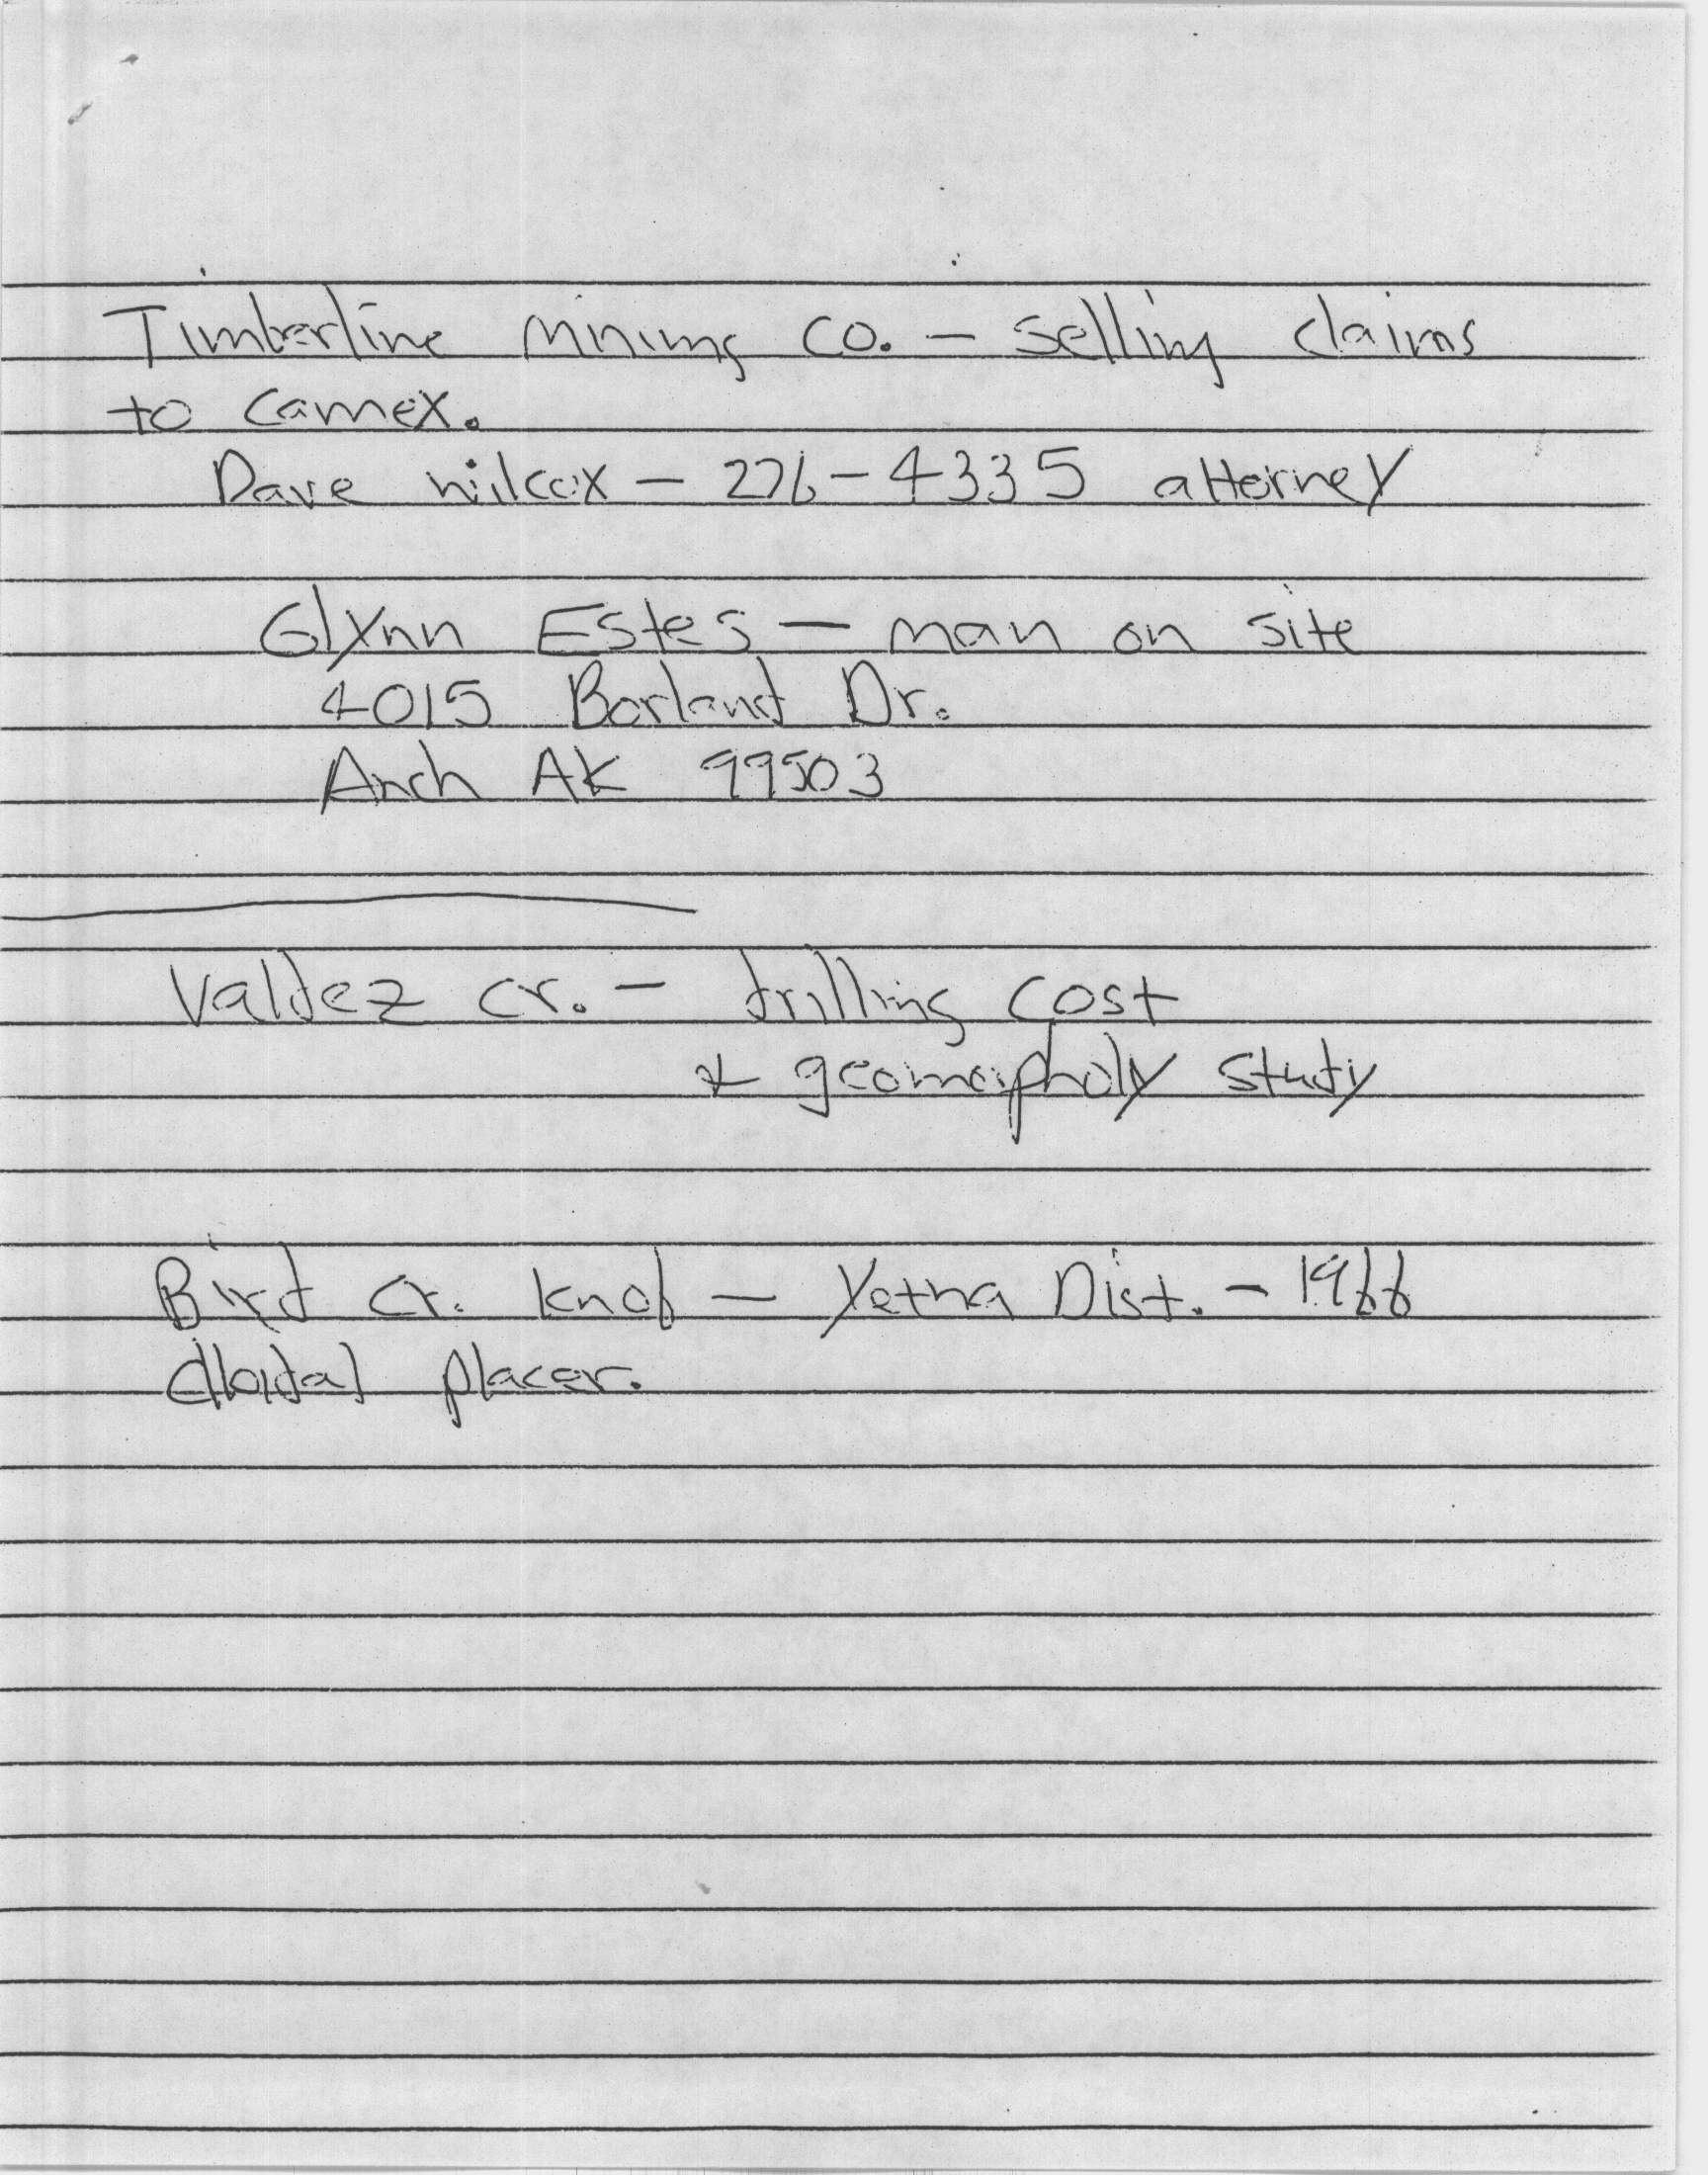 Timberline Mining Co. – selling claims
to Camex.
Dave Wilcox – 276-4335 attorney
Glynn Estes – man on site
4015 Borland Dr.
Anch AK 99503
Valdez cr. – drilling cost
& geomorpholy study
Bird cr. knob – Yetna Dist. – 1966
placer.